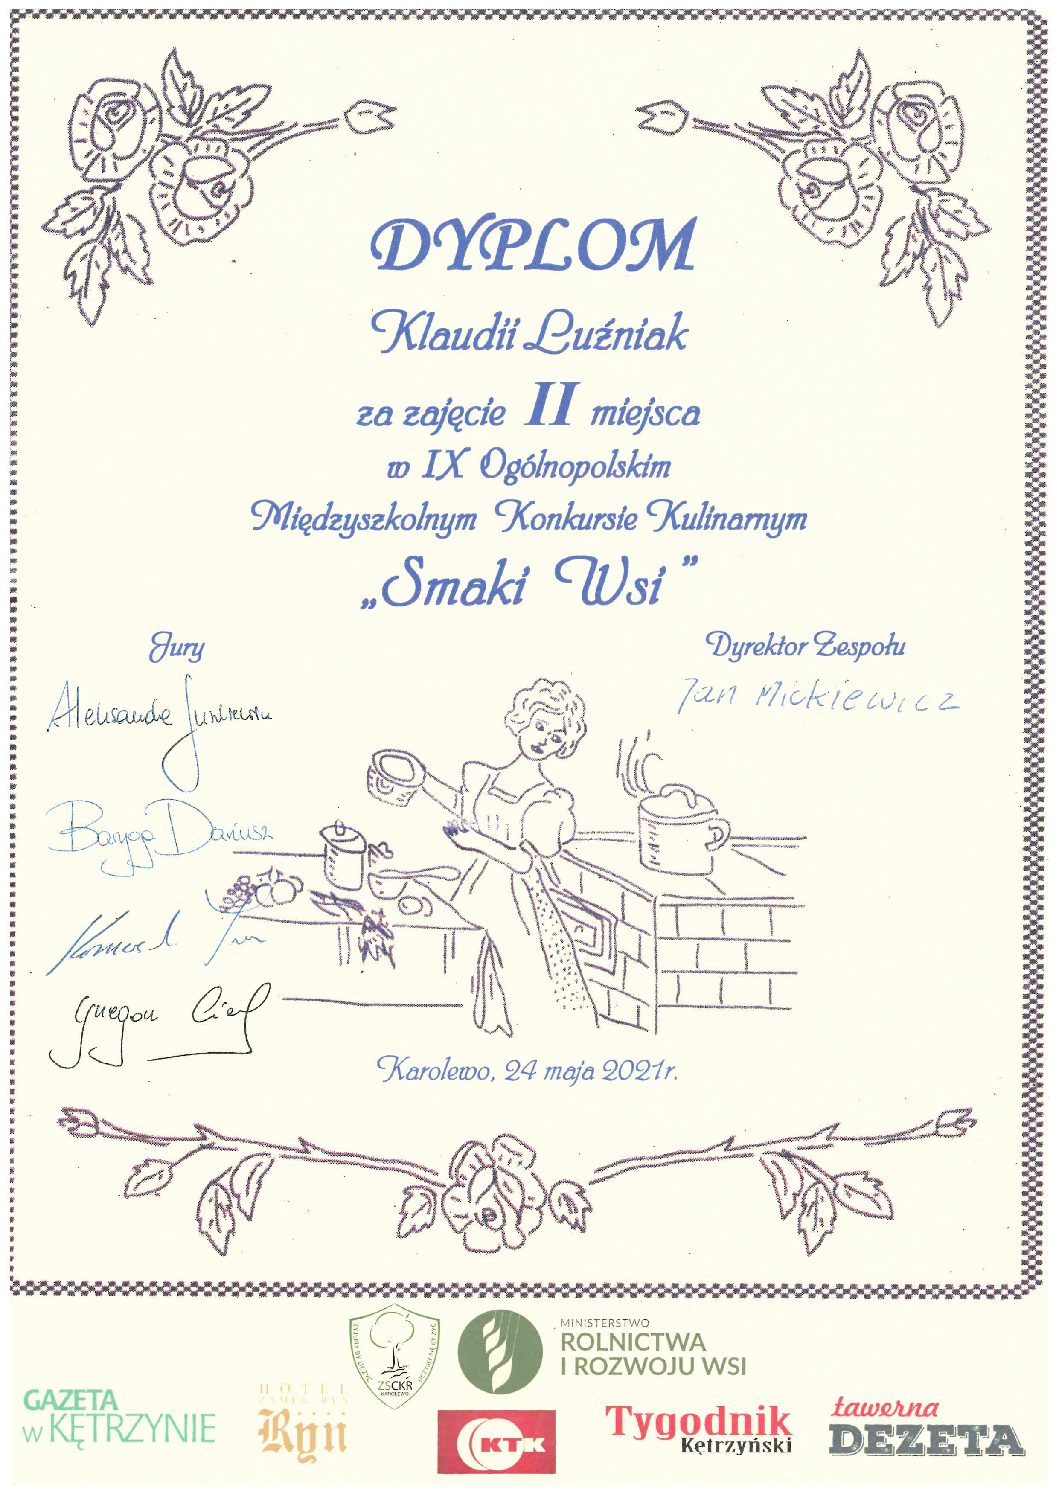 DYPLOM
Klaudii Luźniak
za zajęcie II miejsca
w IX Ogólnopolskim
Międzyszkolnym Konkursie Kulinarnym
„Smaki Wsi”
Jury
Dyrektor Zespołu
Jan Mickiewicz
Aleksandra
Baryga Dariusz
Konrad
Grzegorz
Karolewo, 24 maja 2021r.
ZSCKR
KAROLEWO
MINISTERSTWO
ROLNICTWA
I ROZWOJU WSI
GAZETA
w KĘTRZYNIE
HOTEL
ZAMEK RYN
Ryn
KTK
Tygodnik
Kętrzyński
tawerna
DEZETA